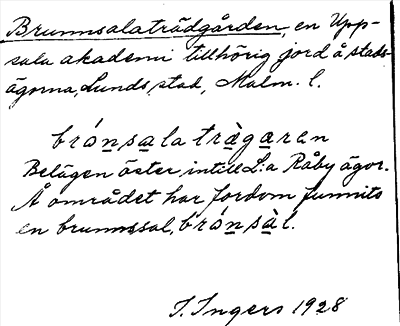 Brunnsalaträdgården, en Upp-
sala akademi tillhörig jord å stads-
ägorna, Lunds stad, Malm. l.
brónsalatràgaren
Belägen öster, intill L:a Råby ägor.
Å området har fordom funnits
en brunnssal, brónsàl.
I. Ingers 1928